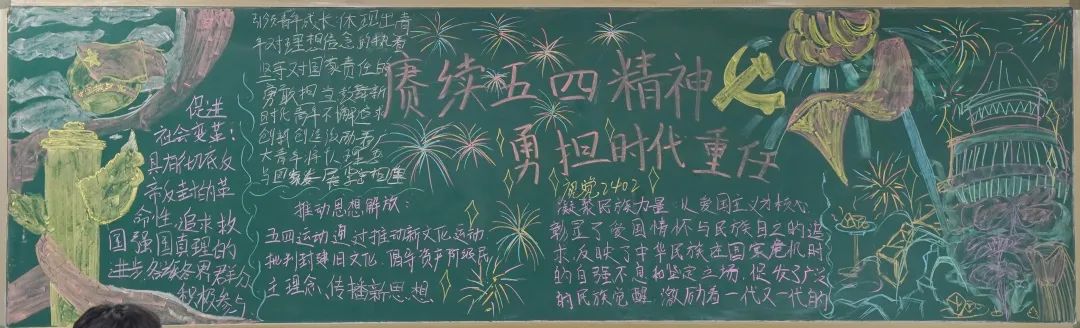 赓续五四精神
勇担时代重任
视觉2402
引领青年成长:体现出青
年对理想信念的执着
坚守对国家责任的
勇敢担当
时代青年不断追求
创新创造激励着广
大青年将
与国家发展紧密相连
促进
社会变革:
具有彻底反
帝反封建的革
命性,追求救
国强国真理的
进步各族各界群众
积极参与
推动思想解放:
五四运动通过推动新文化运动
批判封建旧文化,倡导资产阶级民
主理念、传播新思想
凝聚民族力量:以爱国主义为核心
彰显了爱国情怀与民族自立的追
求,反映了中华民族在国家危机时
的自强不息和坚定立场,促发了广泛
的民族觉醒,激励着一代又一代的